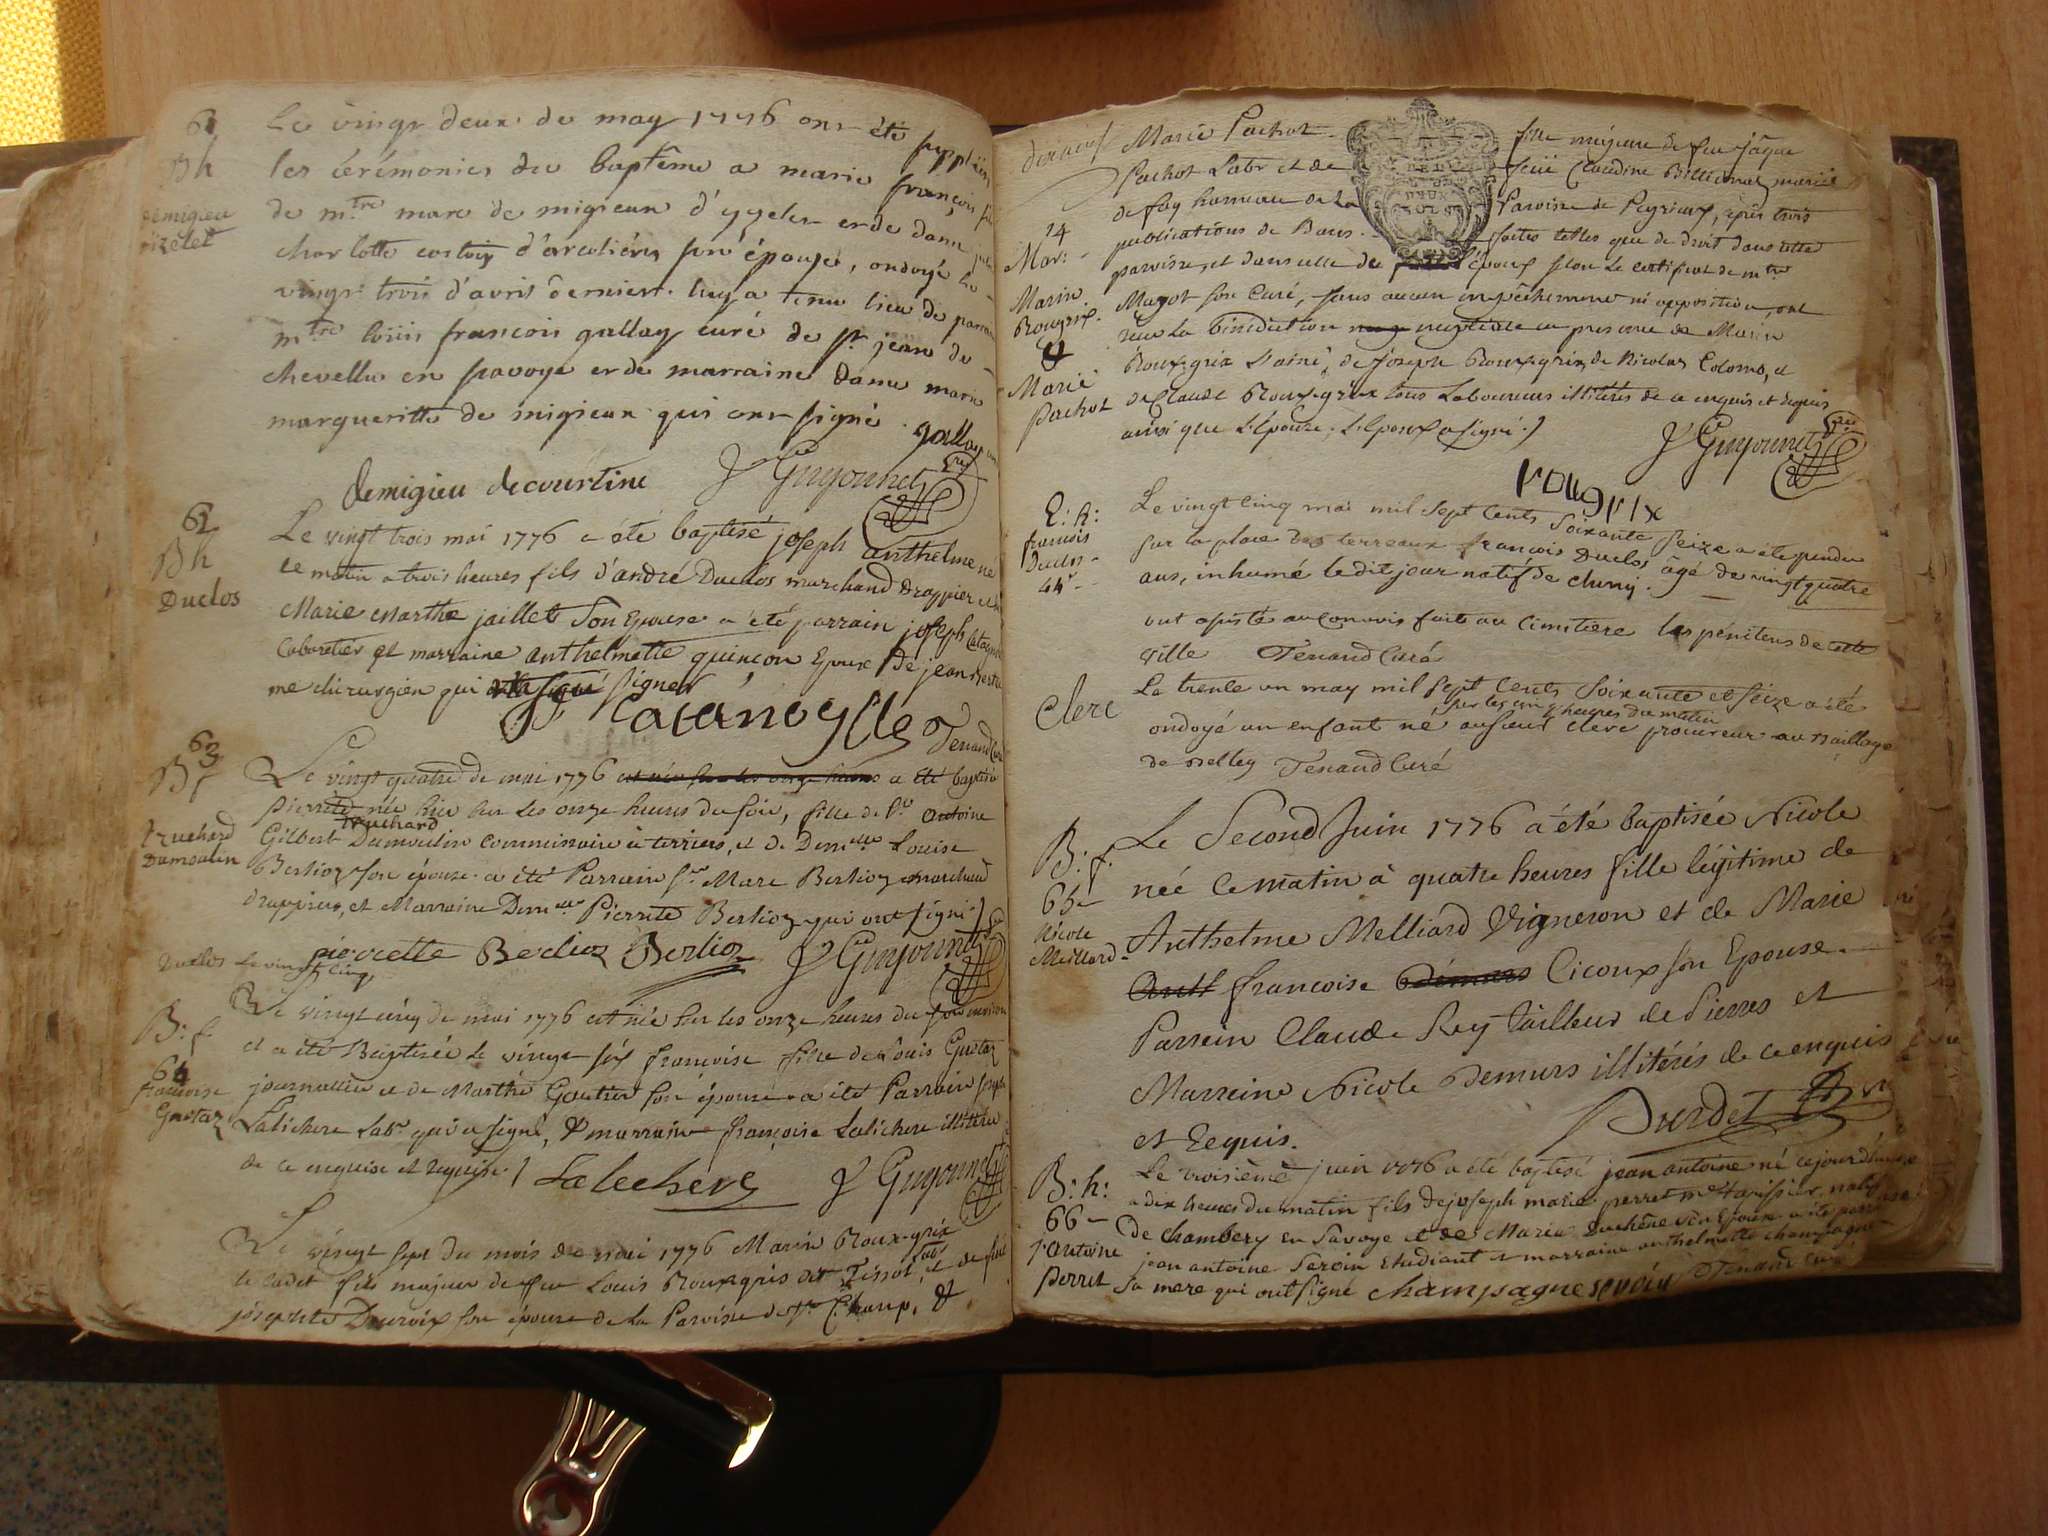 61
Bh
demigieu
Le vingt deux de may 1776 ont été supplées
les cérémonies du baptême a marie françois
de mtre marc de migieux d'yzelet et de dame
charlotte d'arculiéres son épouse, ondoyé le
vingt trois d'avril dernier. luy a tenu lieu de parrain
mtre loüis françois gallay curé de st jean de
chevellu en savoye et de marraine dame marie
margueritte de migieux qui ont signé. gallay
demigieu decourtine J Guyonnet
62
Bh
Duclos
Le vingt trois mai 1776 a été baptisé joseph anthelme né
ce matin a trois heures fils d'andré Duclos marchand drappier et de
Marie Marthe jaillet Son Epouse a été parrain joseph
Cabaretier et marraine anthelmette quinson Epouse de jean
me chirurgien qui signer
Tenand Curé
63
Bf
truchard
Dumoulin
Le vingt quatre de mai 1776 a été baptisée
pierrette née hier sur les onze heures du soir, fille de Sr Antoine
truchard
Gilbert Dumoulin Commissaire à terriers, et de Demlle Louise
Berlioz son épouse. a été Parrain Sr Marc Berlioz marchand
drappier, et Marraine Demlle Pierrette Berlioz qui ont signé./
pierrette Berlioz Berlioz J Guyonnet
Duclos Le vingt cinq
B: f.
64
francoise
Gustaz
Le vingt cinq de mai 1776 est née sur les onze heures du soir environ
et a été Baptisée le vingt six francoise fille de Louis Gustaz
journallier et de Marthe Gautier son épouse. a été Parrain joseph
Lalichere Labr qui a signé, & marraine françoise Lalichere illitérée
de ce enquise et requise./ Lalechere J Guyonnet
Le vingt sept du mois de mai 1776 Marin Roux-grix
le cadet fils majeur de feu Louis Rouxgris dit Tissot, Labr et de feüe
josephte Ducroix son épouse de la Paroisse de St Champ, &
14
Mar:
Marin
Rougrix
&
Marie
Pachot
Marie Pachot fille mineure de feu jâque
Pachot Labr et de feüe Claudine mariés
de fay hameau de la Paroisse de Peyrieux, après trois
publications de Bans faites telles que de droit dans cette
paroisse, et dans celle de l'époux selon le certificat de mtre
Mayot son Curé, sans aucun empêchement ni opposition, ont
reçu la bénédiction nuptiale en presence de Marin
Roux-grix l'ainé, de Joseph Roux-grix, de Nicolas Colomb, et
de Claude Roux-grix tous Laboureurs illitérés de ce enquis et requis
ainsi que l'Epouse; l'Epoux a signé./
J Guyonnet
rougrix
E: h:
francois
Duclos
44
Le vingt cinq mai mil sept Cents soixante seize a été pendu
sur la place des terreaux françois Duclos âgé de vingt quatre
ans, inhumé ledit jour natif de cluny.
ont assisté au convoi fait au cimetière les pénitens de cette
ville Tenand Curé
Clerc
Le trente un may mil sept Cents soixante et seize a été
sur les cinq heures du matin
ondoyé un enfant né au sieur clerc procureur au Baillage
de Belley Tenand Curé
B: f.
65
Nicole
Meillard
Le Second Juin 1776 a été baptisée Nicole
née ce matin à quatre heures fille légitime de
Anthelme Melliard Vigneron et de Marie
francoise Cicoux son Epouse
Parrein Claude Rey tailleur de Pierres et
Marreine Nicole Demurs illitérés de ce enquis
et Requis. Burdet
B: h:
66
j. antoine
perret
Le troisième juin 1776 a été baptisé jean antoine né cejourdhui
a dix heures du matin fils de joseph marie perret me tapissier natif
de chambery en Savoye et de Marie Duchêne son Epouse a été parrain
jean antoine Seroin Etudiant et marraine anthelmette champagne
sa mere qui ont signé champagne seroin Tenand curé